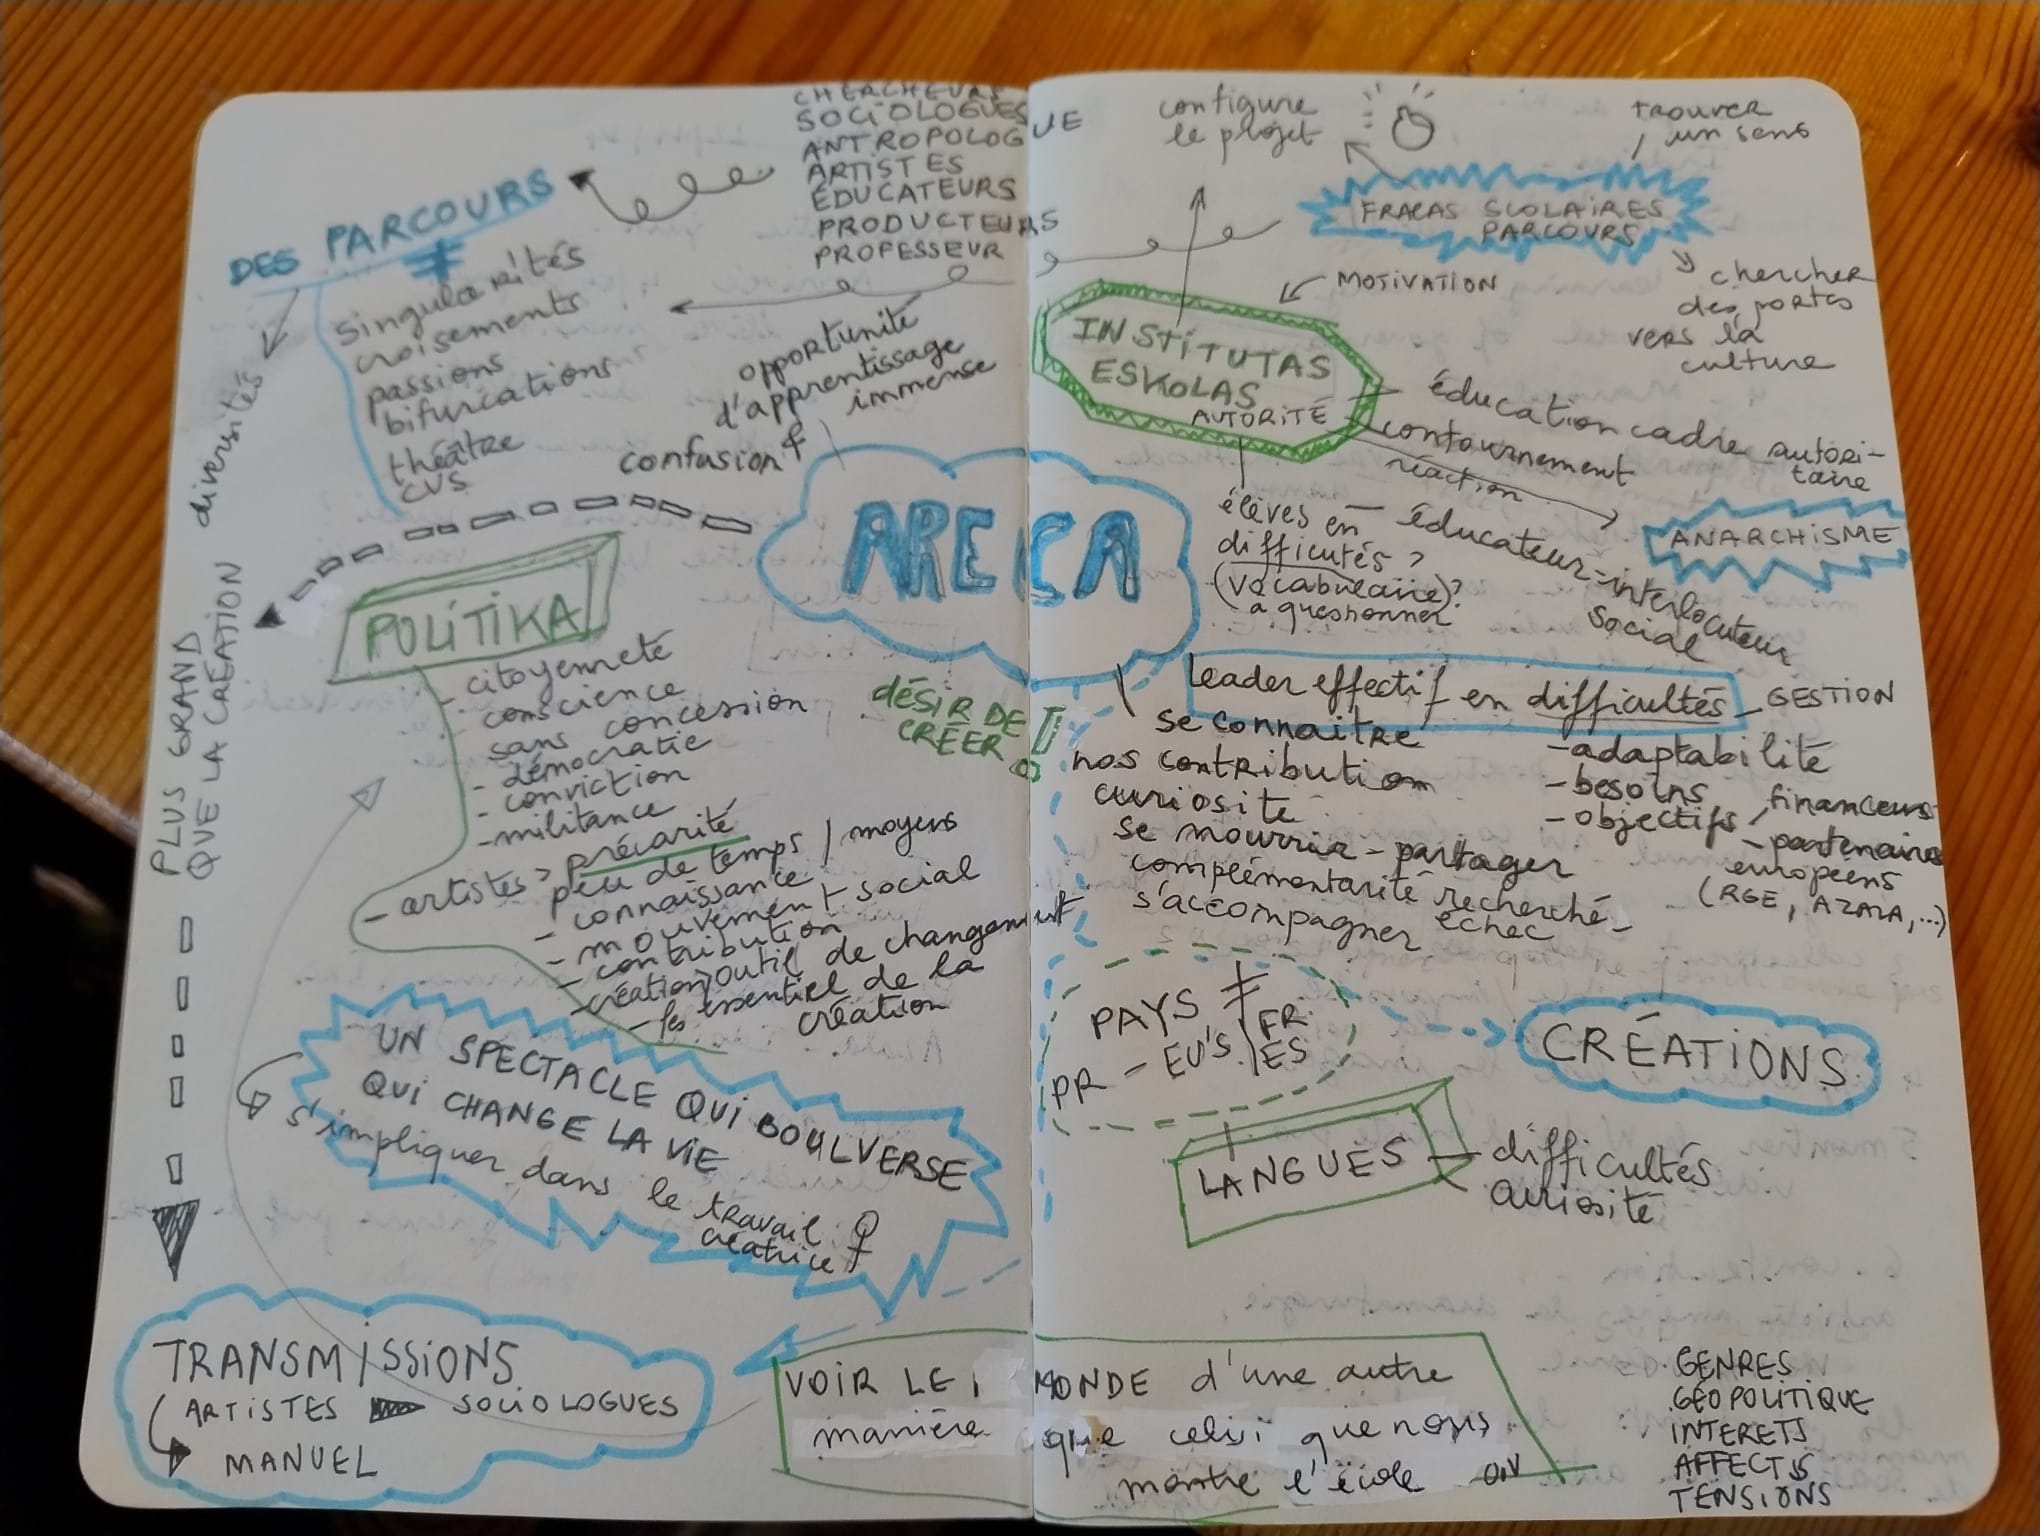 CHERCHEURS
SOCIOLOGUES
ANTROPOLOGUE
ARTISTES
ÉDUCATEURS
PRODUCTEURS
PROFESSEUR
DES PARCOURS
≠
singularités
croisements
passions
bifurcations
théâtre
CVS
diversités
opportunité
d'apprentissage
immense
confusion
PLUS GRAND
QUE LA CRÉATION
POLITIKA
- citoyenneté
conscience
sans concession
- démocratie
- conviction
- militance
- artistes > précarité
peu de temps / moyens
- connaissance
- mouvement social
- contribution
- création > outil de changement
- les essentiel de la
création
UN SPECTACLE QUI BOULVERSE
QUI CHANGE LA VIE
s'impliquer dans le travail
créatrice ♀
TRANSMISSIONS
ARTISTES SOCIOLOGUES
MANUEL
ARECA
désir DE
CRÉER !
configure
le projet
trouver
un sens
FRACAS SCOLAIRES
PARCOURS
MOTIVATION
chercher
des portes
vers la
culture
INSTITUTAS
ESKOLAS
AUTORITÉ
éducation cadre autori-
taire
contournement
réaction
ANARCHISME
élèves en — éducateur - interlocuteur
difficultés ? social
(vocabulaire)?
à questionner
Leader effectif en difficultés - GESTION
se connaitre
nos contribution
curiosité
se nourrir - partager
complémentarité recherché -
s'accompagner échec
- adaptabilité
- besoins
- objectifs / financeurs
- partenaires
européens
(RGE, AZALA, ...)
PAYS ≠
PR - EU'S \ FR
ES
CRÉATIONS
LANGUES
difficultés
curiosité
VOIR LE MONDE d'une autre
manière que celui que nous
montre l'école
GENRES
GÉOPOLITIQUE
INTERETS
AFFECTS
TENSIONS